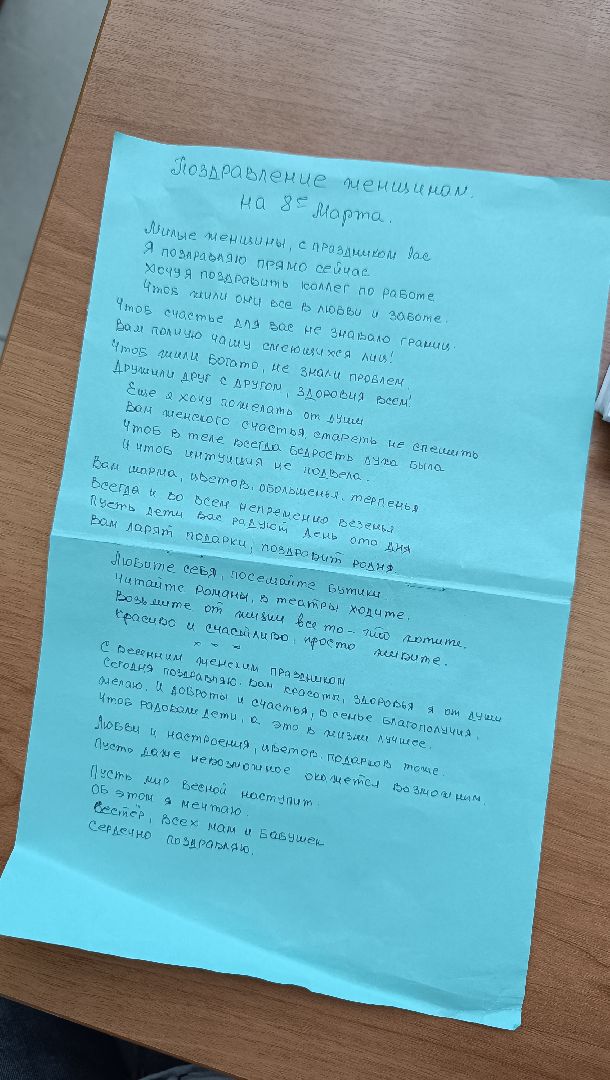 Поздравление женщинам.
на 8е Марта.
Милые женщины, с праздником Вас
Я поздравляю прямо сейчас
Хочу я поздравить коллег по работе
Чтоб жили они все в любви и заботе.
Чтоб счастье для вас не знавало границ.
Вам полную чашу смеющихся лиц!
Чтоб жили богато, не знали проблем.
Дружили друг с другом, здоровья всем!
Еще я хочу пожелать от души
Вам женского счастья, стареть не спешить
Чтоб в теле всегда бодрость духа была
И чтоб интуиция не подвела.
Вам шарма, цветов, обольщенья, терпенья
Всегда и во всем непременно везенья
Пусть дети вас радуют день ото дня
Вам дарят подарки, поздравит родня.
Любите себя, посещайте бутики
Читайте романы, в театры ходите.
Возьмите от жизни все то - что хотите.
Красиво и счастливо, просто живите.
× × ×
С весенним женским праздником
Сегодня поздравляю. Вам красоты, здоровья я от души
желаю. И доброты и счастья, в семье благополучия.
Чтоб радовали дети, а это в жизни лучшее.
Любви и настроения, цветов, подарков тоже.
Пусть даже невозможное окажется возможным.
Пусть мир весной наступит.
Об этом я мечтаю.
Сестёр, всех мам и бабушек
Сердечно поздравляю.